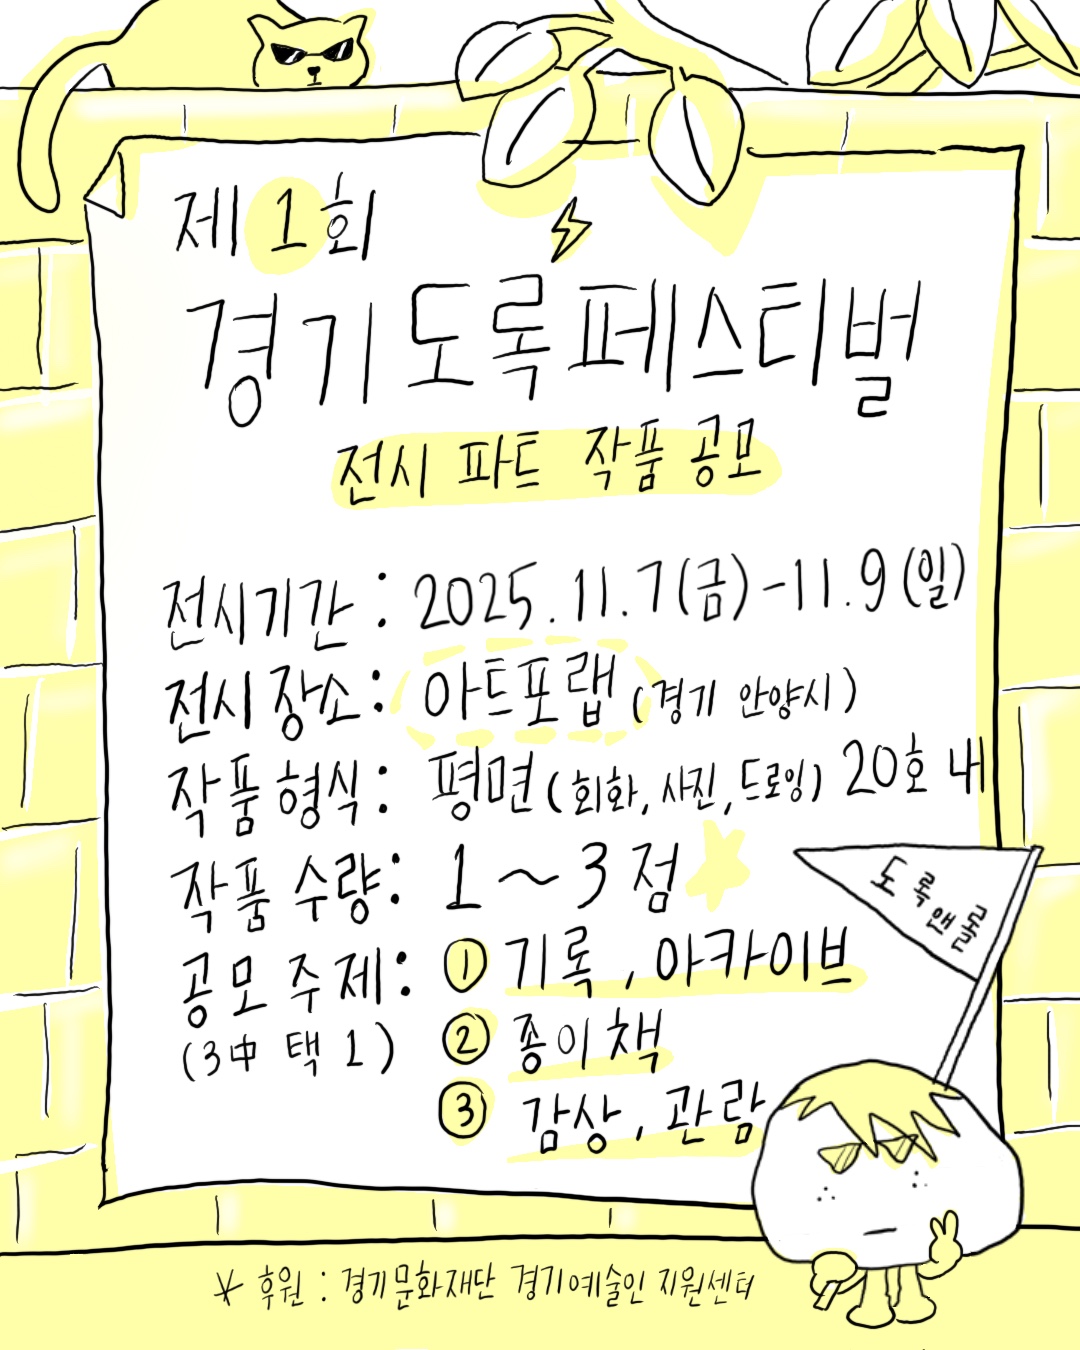 제1회
경기도록페스티벌
전시 파트 작품 공모
전시기간 : 2025.11.7(금)-11.9(일)
전시장소 : 아트포랩 (경기 안양시)
작품형식 : 평면(회화, 사진, 드로잉) 20호 내
작품 수량 : 1~3점
공모 주제 : ① 기록, 아카이브
(3中 택 1)
② 종이책
③ 감상, 관람
도록앤롤
* 후원 : 경기문화재단 경기예술인 지원센터